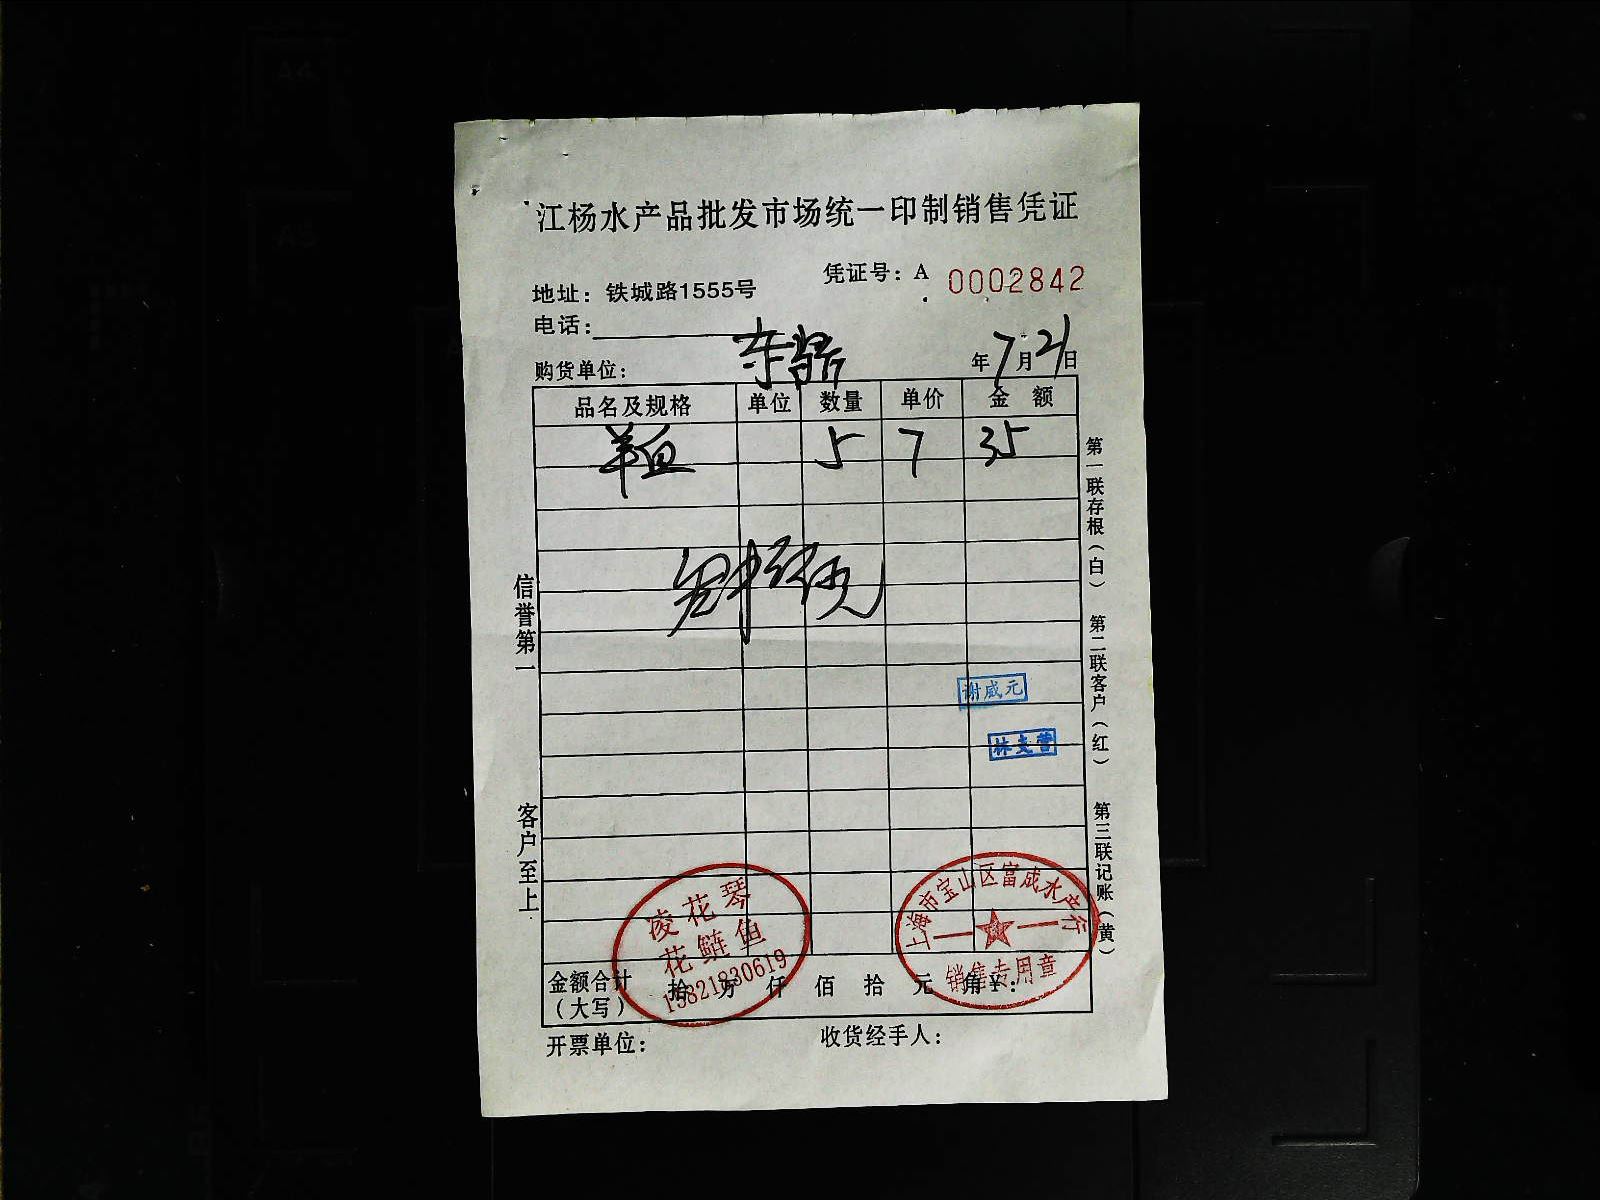 江杨水产品批发市场统一印制销售凭证
凭证号：A 0002842
地址：铁城路1555号
电话：
购货单位： 东鼎 年7月21日
品名及规格 单位 数量 单价 金 额
羊血 5 7 35
谢威元
林支营
信誉第一
客户至上
第一联存根（白）
第二联客户（红）
第三联记账（黄）
凌花琴
花鲢鱼
15821830619
上海市宝山区富成水产行
销售专用章
金额合计（大写） 拾 万 仟 佰 拾 元 角 ￥：
开票单位： 收货经手人：